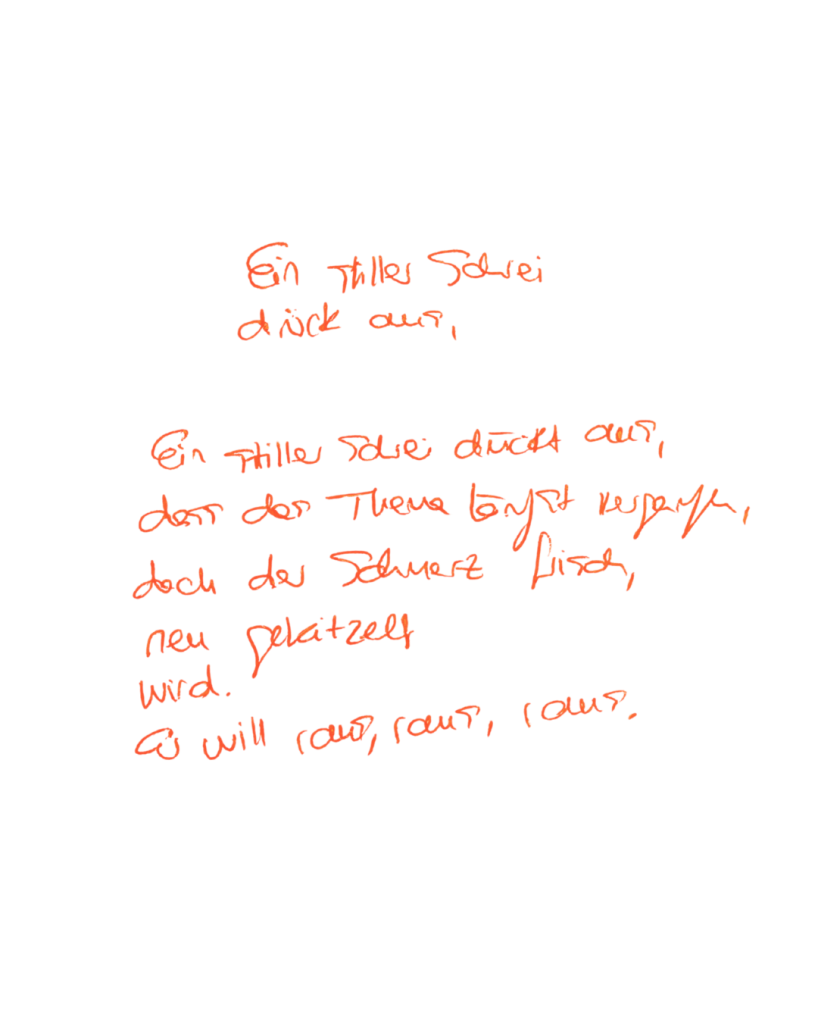 Ein stiller Schrei
drück aus,
Ein stiller Schrei drückt aus,
dass das Thema längst vergangen,
doch der Schmerz frisch,
neu gekitzelt
wird.
Es will raus, raus, raus.